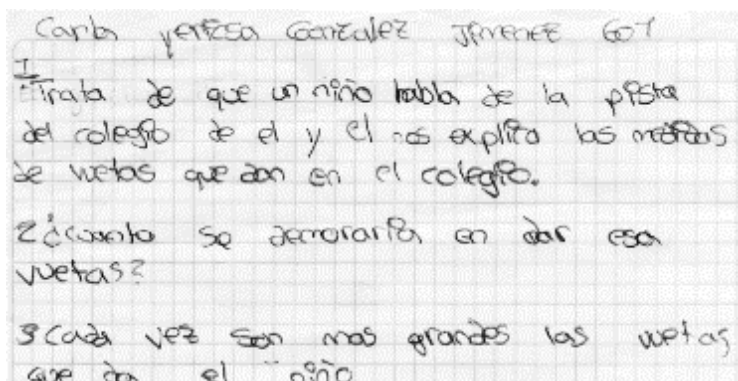 Carla yeritsa Gonzalez Jimenez 607
1
Trata de que un niño habla de la pista
del colegio de el y el nos explica las medidas
de vuetas que dan en el colegio.
2 ¿cuanto se demoraria en dar esa
vuetas?
3 Cada vez son mas grandes las vuetas
que da el niño